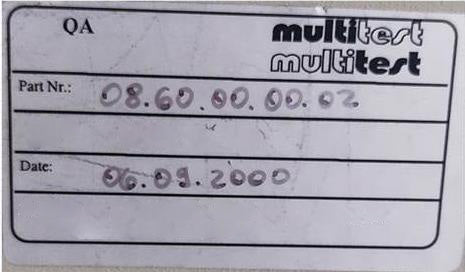 QA
multitest
multitest
Part Nr.: 08.60.00.00.02
Date: 06.09.2000